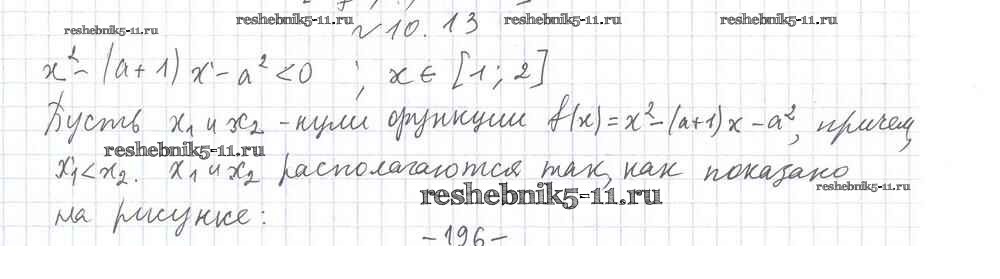 reshebnik5-11.ru
reshebnik5-11.ru
reshebnik5-11.ru
reshebnik5-11.ru
№10.13
x² - (a+1)x - a² < 0 ; x ∈ [1; 2]
Пусть x₁ и x₂ - нули функции f(x) = x² - (a+1)x - a², причем,
reshebnik5-11.ru
x₁ < x₂. x₁ и x₂ располагаются так, как показано
reshebnik5-11.ru
reshebnik5-11.ru
на рисунке:
-196-